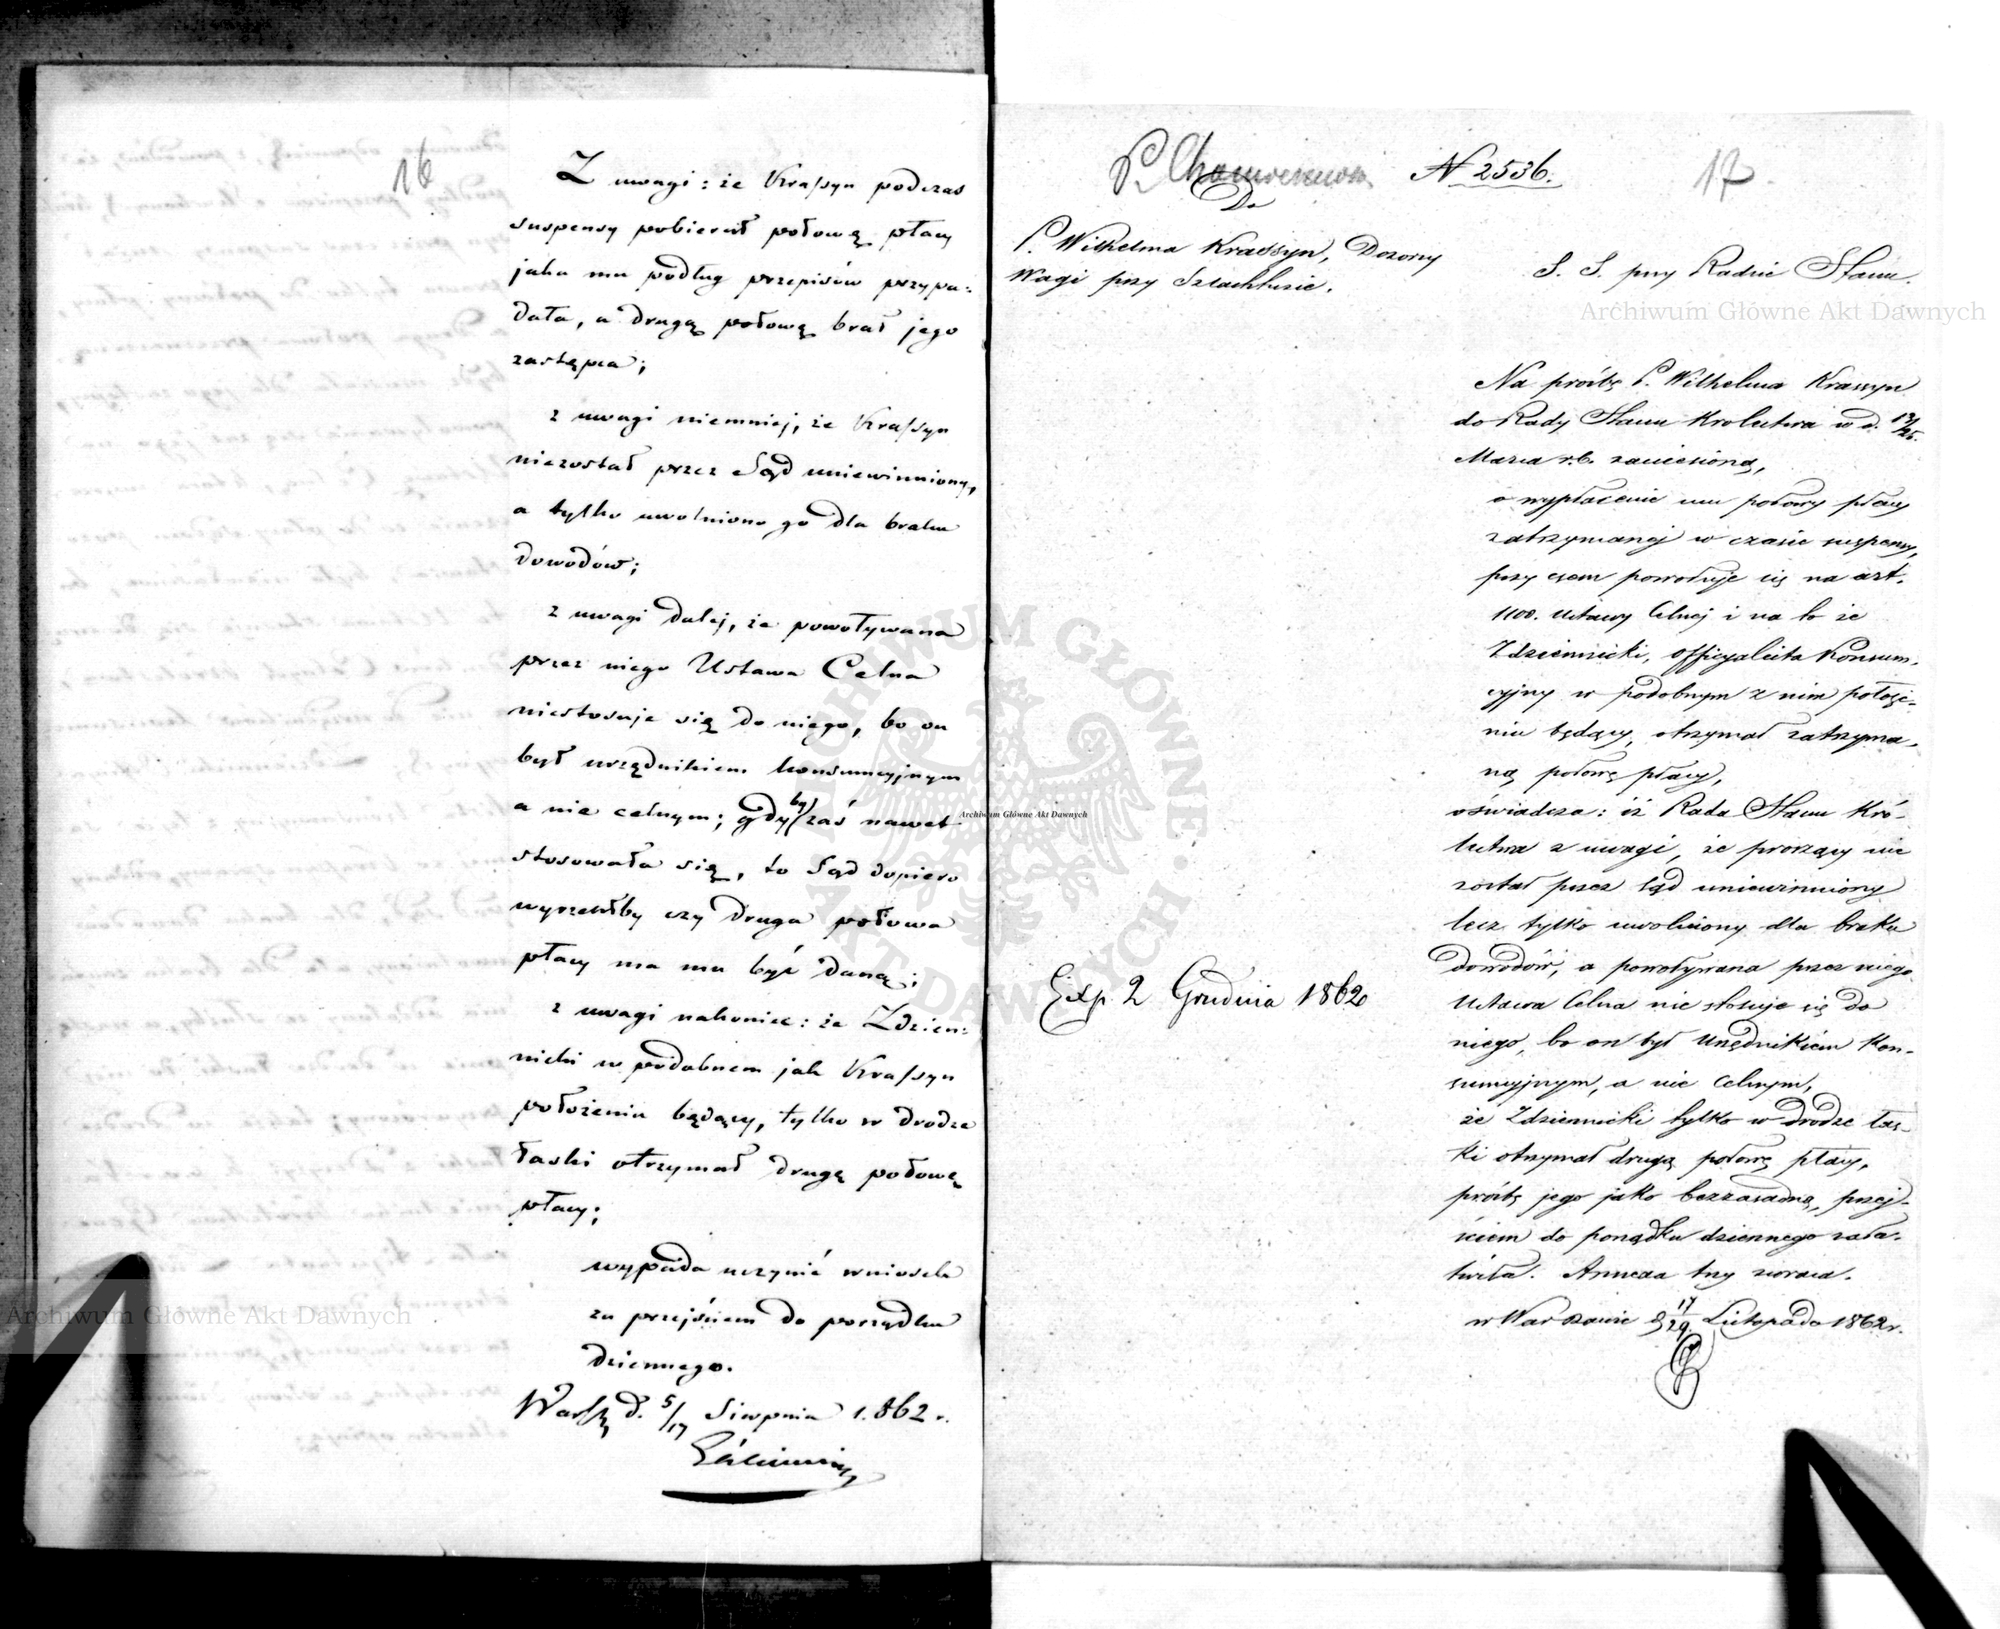 16
Z uwagi: że Krassyn podczas
suspensy pobierał połowę płacy
jaka mu podług przepisów przypa-
dała, a drugą połowę brał jego
zastępca;
z uwagi niemniej, że Krassyn
niezostał przez Sąd uniewinniony,
a tylko uwolniono go dla braku
dowodów;
z uwagi dalej, że powoływana
przez niego Ustawa Celna
niestosuje się do niego, bo on
był urzędnikiem konsumcyjnym
a nie celnym; gdyby zaś nawet
stosowała się, to Sąd dopiero
wyrzekłby czy druga połowa
płacy ma mu być daną;
z uwagi nakoniec: że Zdzien-
nicki w podobnem jak Krassyn
położeniu będący, tylko w drodze
łaski otrzymał drugą połowę
płacy;
wypada uczynić wniosek
za przejściem do porządku
dziennego.
Warsz. d. 5/17 Sierpnia 1862 r.
P. N 2536. 17
Do
P. Wilhelma Krassyn, Dozorcy
Wagi przy Szlachtuzie.
S. S. przy Radzie Stanu.
Na prośbę P. Wilhelma Krassyn
do Rady Stanu Królestwa w d. 13/25
Marca r.b. zaniesioną,
o wypłacenie mu połowy płacy
zatrzymanej w czasie suspensy,
przy czem powołuje się na art.
1108. Ustawy Celnej i na to że
Zdziennicki, Officyalista Konsum-
cyjny w podobnym z nim położe-
niu będący, otrzymał zatrzyma-
ną połowę płacy,
oświadcza: iż Rada Stanu Kró-
lestwa z uwagi, że proszący nie
został przez Sąd uniewinniony
lecz tylko uwolniony dla braku
dowodów, a powoływana przez niego
Ustawa Celna nie stosuje się do
niego, bo on był Urzędnikiem Kon-
sumcyjnym, a nie Celnym,
że Zdziennicki tylko w drodze łas-
ki otrzymał drugą połowę płacy,
prośbę jego jako bezzasadną, przej-
ściem do porządku dziennego zała-
twiła. Annexa trzy zwraca.
w Warszawie d 17/29 Listopada 1862 r.
Exp. 2 Grudnia 1862
Archiwum Główne Akt Dawnych
Archiwum Główne Akt Dawnych
Archiwum Główne Akt Dawnych
ARCHIWUM GŁÓWNE · AKT DAWNYCH ·